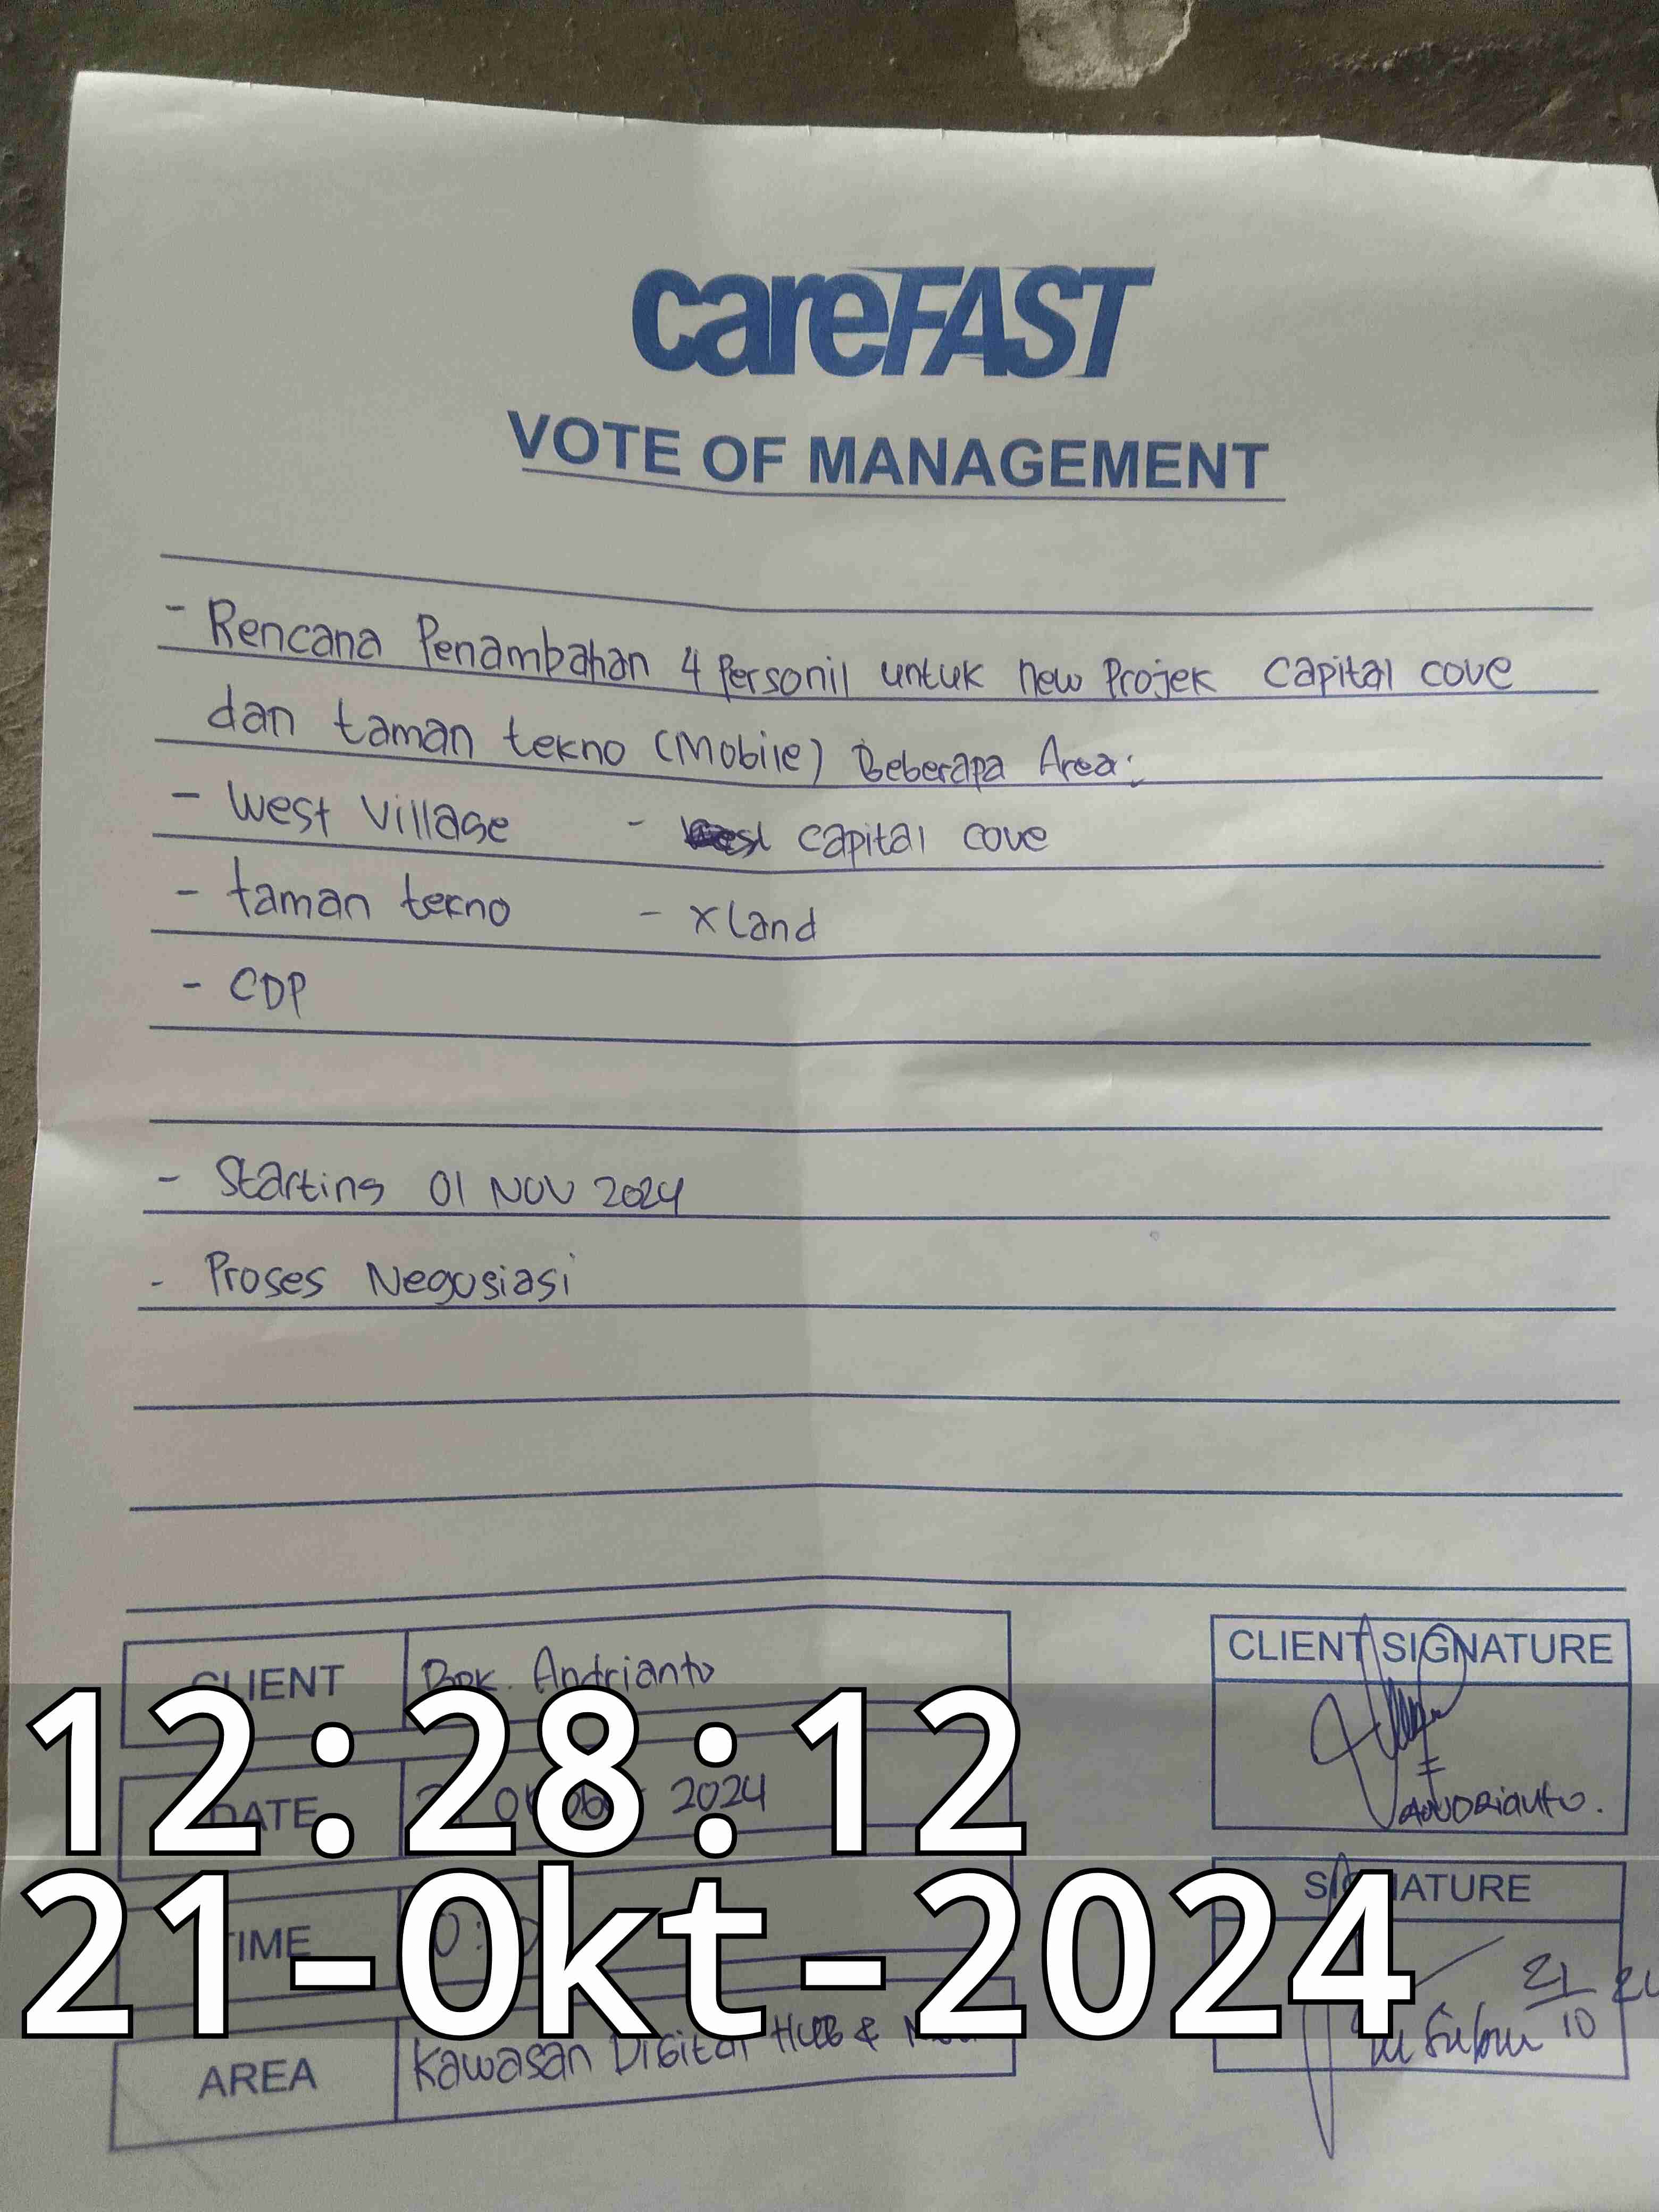 careFAST
VOTE OF MANAGEMENT
- Rencana Penambahan 4 Personil untuk new Projek Capital cove
dan taman tekno (Mobile) Beberapa Area:
- West Village - Capital cove
- taman tekno - X Land
- CDP
- Starting 01 NOV 2024
- Proses Negosiasi
CLIENT Bpk. Andrianto
CLIENT SIGNATURE
ANDRIANTO.
12:28:12
DATE 2024
21-Okt-2024
TIME
SIGNATURE
21/10
AREA Kawasan Digital HUB &